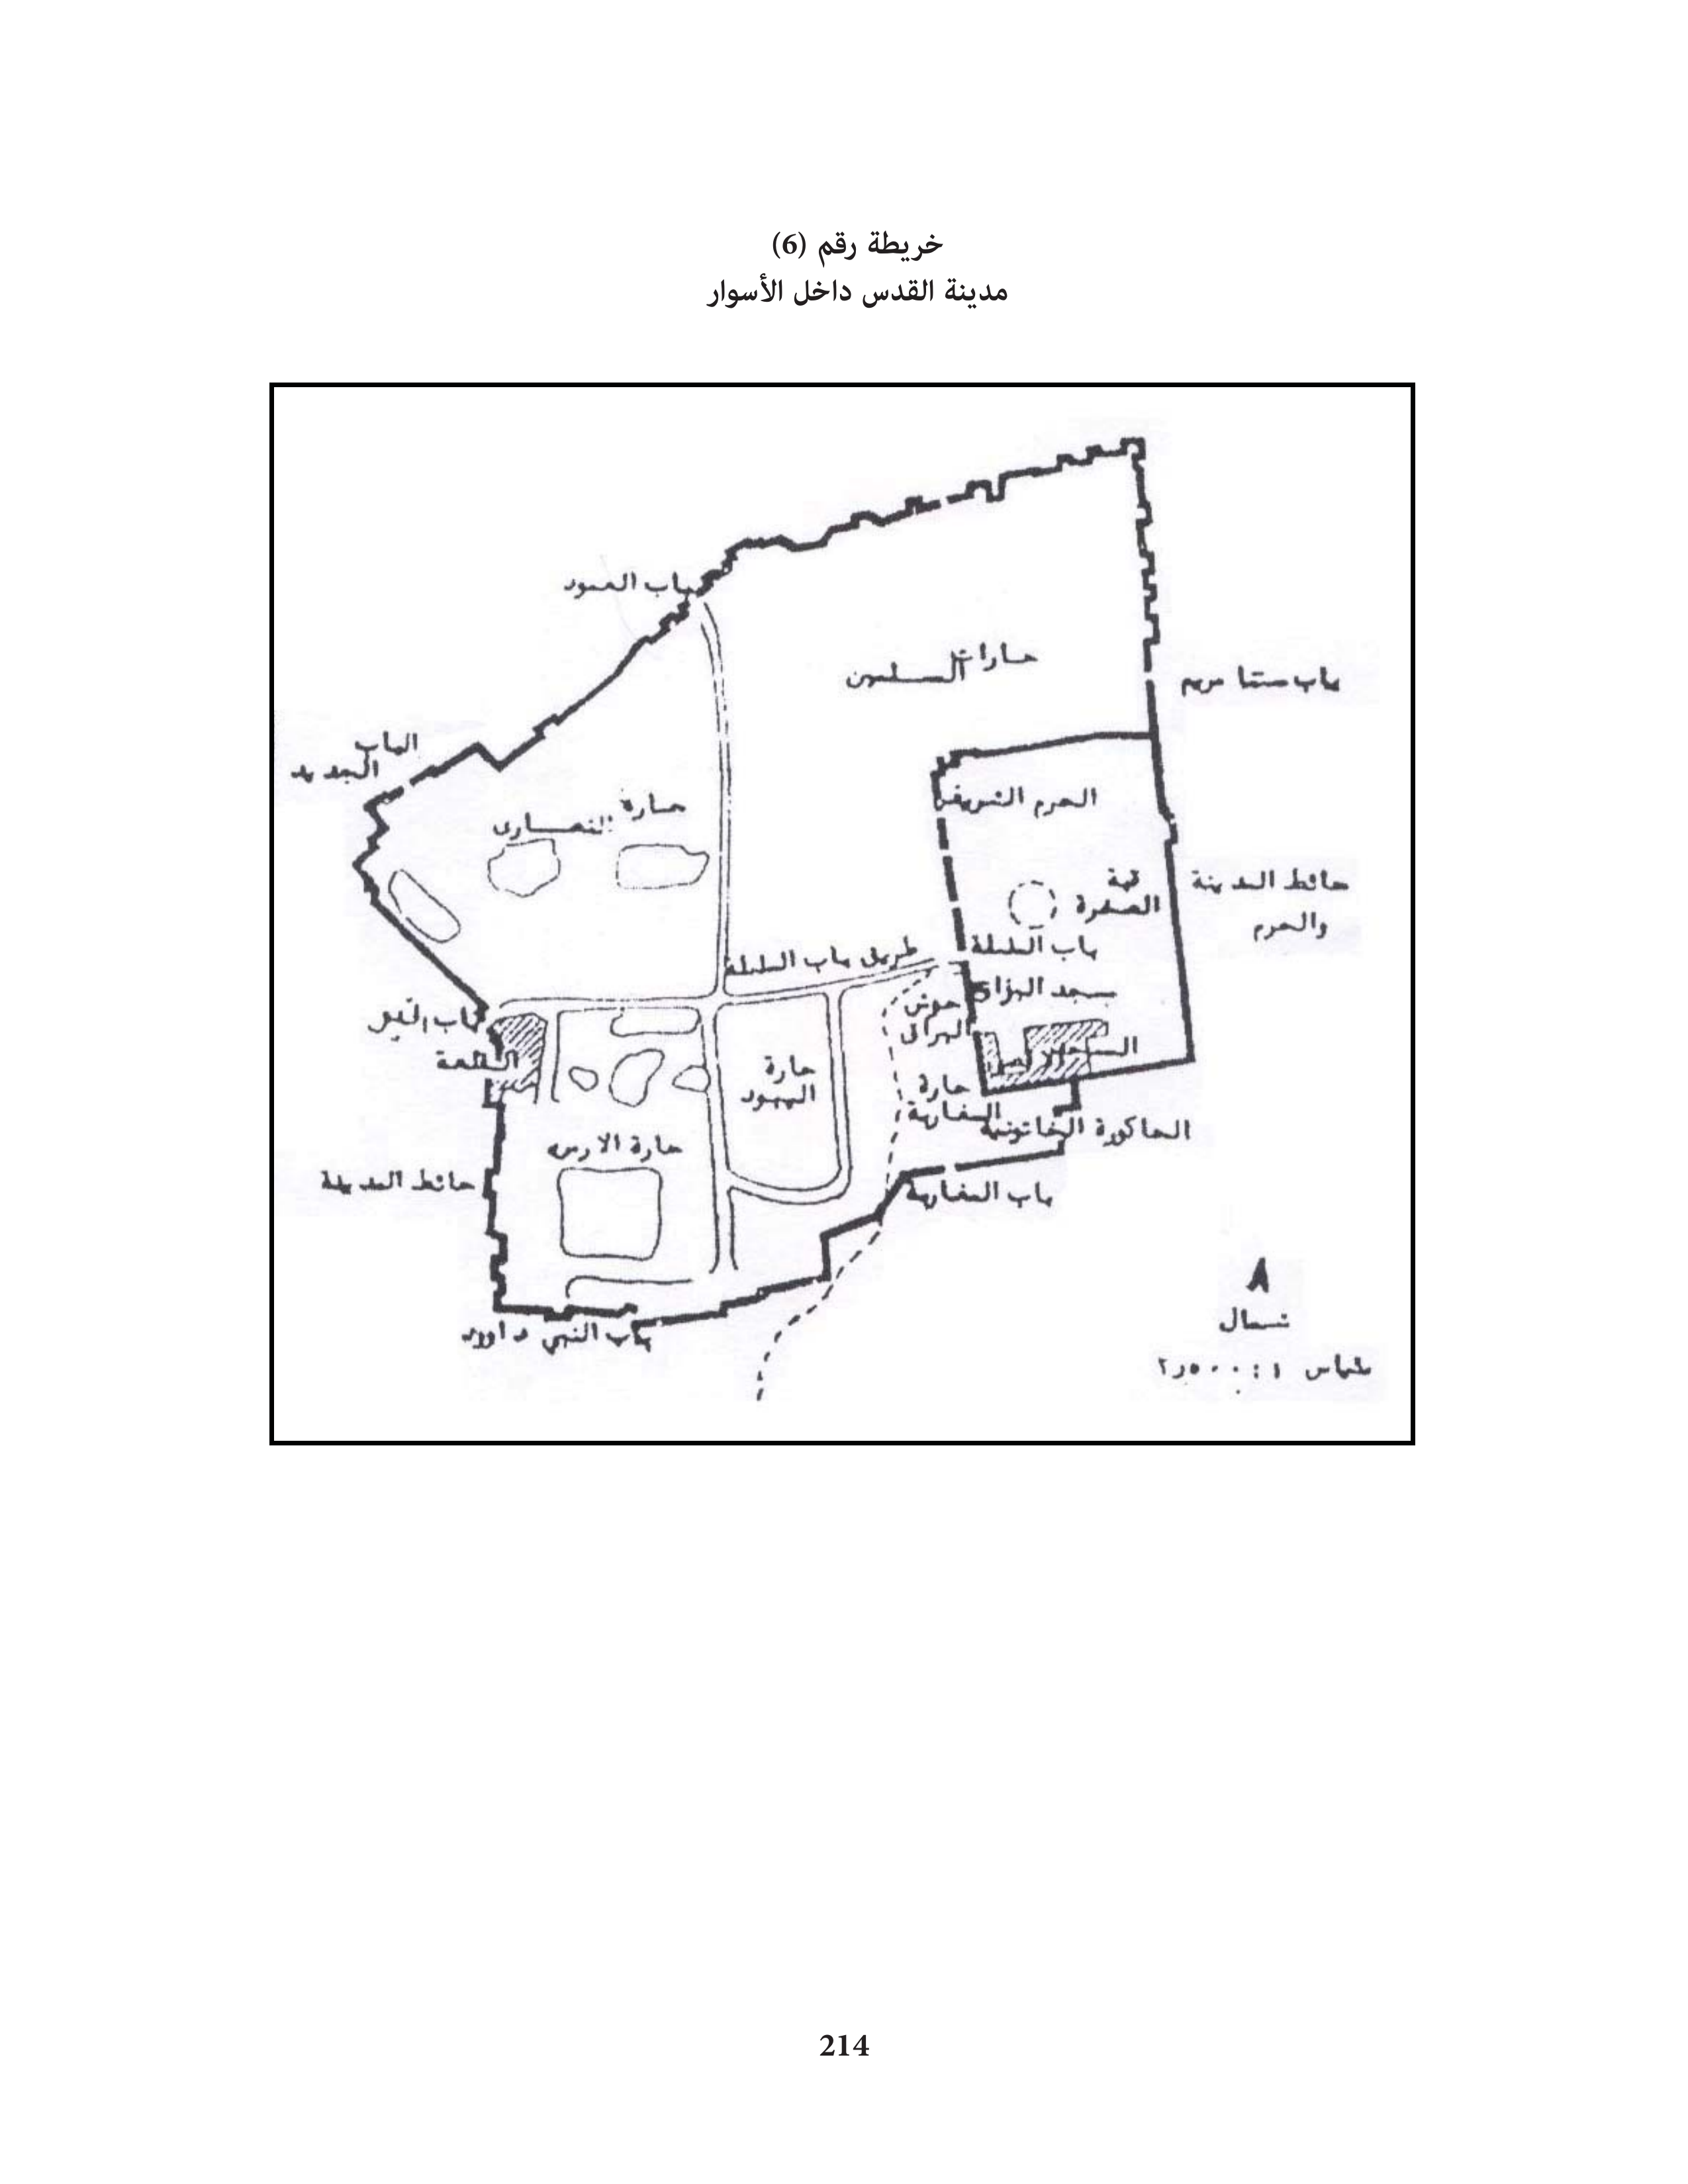 خريطة رقم (6)
مدينة القدس داخل الأسوار
باب العمود
حارات
المسلمين
باب ستنا مريم
الباب
الجديد
حارة
النصارى
الحرم الشريف
قبة
الصخرة
حائط المدينة
والحرم
باب السلسلة
طريق باب السلسلة
مسجد البراق
حوش
البراق
باب الخليل
القلعة
المسجد الاقصى
حارة
اليهود
حارة
المغاربة
الحاكورة الخاتونية
حارة الارمن
حائط المدينة
باب المغاربة
باب النبي داوود
شمال
مقياس ١ : ٢٫٥٠٠
214